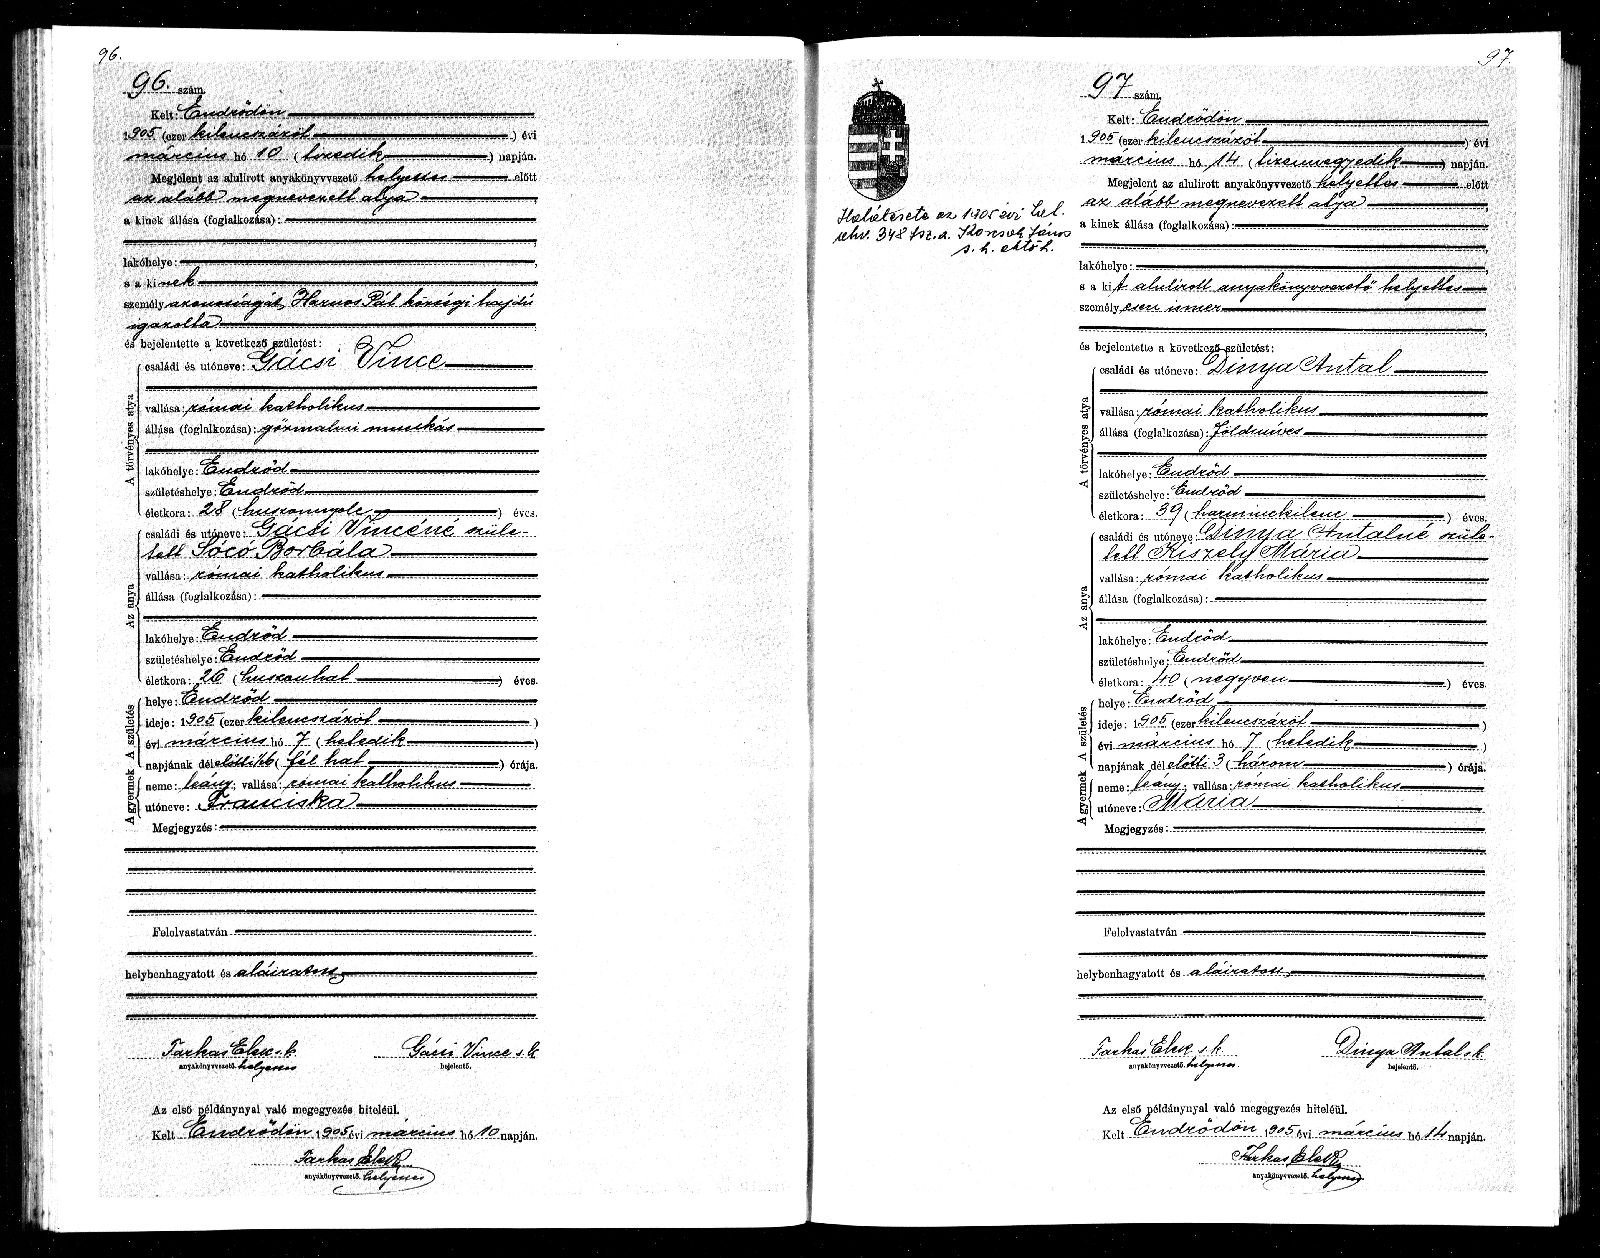 96.
96. szám.
Kelt: Endrődön
1905 (ezer kilencszázöt) évi
március hó 10 (tizedik) napján.
Megjelent az alulírott anyakönyvvezető helyettes előtt
az alább megnevezett atya
a kinek állása (foglalkozása):
lakóhelye:
s a kinek
személyazonosságát Harnos Pál községi hajdú
igazolta
és bejelentette a következő születést:
A törvényes atya
családi és utóneve: Gácsi Vince
vallása: római katholikus
állása (foglalkozása): gőzmalmi munkás
lakóhelye: Endrőd
születéshelye: Endrőd
életkora: 28 (huszonnyolc) éves.
Az anya
családi és utóneve: Gácsi Vincéné szüle-
tett Sócó Borbála
vallása: római katholikus
állása (foglalkozása):
lakóhelye: Endrőd
születéshelye: Endrőd
életkora: 26 (huszonhat) éves.
A születés
helye: Endrőd
ideje: 1905 (ezer kilencszázöt)
évi március hó 7 (hetedik)
napjának délelőtti ½6 (fél hat) órája.
A gyermek
neme: leány; vallása: római katholikus
utóneve: Franciska
Megjegyzés:
Felolvastatván
helybenhagyatott és aláiratott,
Farkas Elek s. k. Gácsi Vince s. k.
anyakönyvvezető. helyettes bejelentő.
Az első példánynyal való megegyezés hiteléül.
Kelt Endrődön 1905 évi március hó 10 napján.
Farkas Elek
anyakönyvvezető. helyettes
97.
97 szám.
Kelt: Endrődön
1905 (ezer kilencszázöt) évi
március hó 14 (tizennegyedik) napján.
Megjelent az alulírott anyakönyvvezető helyettes előtt
az alább megnevezett atya
a kinek állása (foglalkozása):
lakóhelye:
s a kit alulírott anyakönyvvezető helyettes
személyesen ismer
és bejelentette a következő születést:
A törvényes atya
családi és utóneve: Dinya Antal
vallása: római katholikus
állása (foglalkozása): földmíves
lakóhelye: Endrőd
születéshelye: Endrőd
életkora: 39 (harminckilenc) éves.
Az anya
családi és utóneve: Dinya Antalné szüle-
tett Kiszely Mária
vallása: római katholikus
állása (foglalkozása):
lakóhelye: Endrőd
születéshelye: Endrőd
életkora: 40 (negyven) éves.
A születés
helye: Endrőd
ideje: 1905 (ezer kilencszázöt)
évi március hó 7 (hetedik)
napjának délelőtti 3 (három) órája.
A gyermek
neme: leány; vallása: római katholikus
utóneve: Mária
Megjegyzés:
Felolvastatván
helybenhagyatott és aláiratott,
Farkas Elek s. k. Dinya Antal s. k.
anyakönyvvezető. helyettes. bejelentő.
Az első példánynyal való megegyezés hiteléül.
Kelt Endrődön 1905 évi március hó 14 napján.
Farkas Elek
anyakönyvvezető. helyettes
Halálesete az 1905 évi hal.
akv. 348 fsz. a. János
s. k.